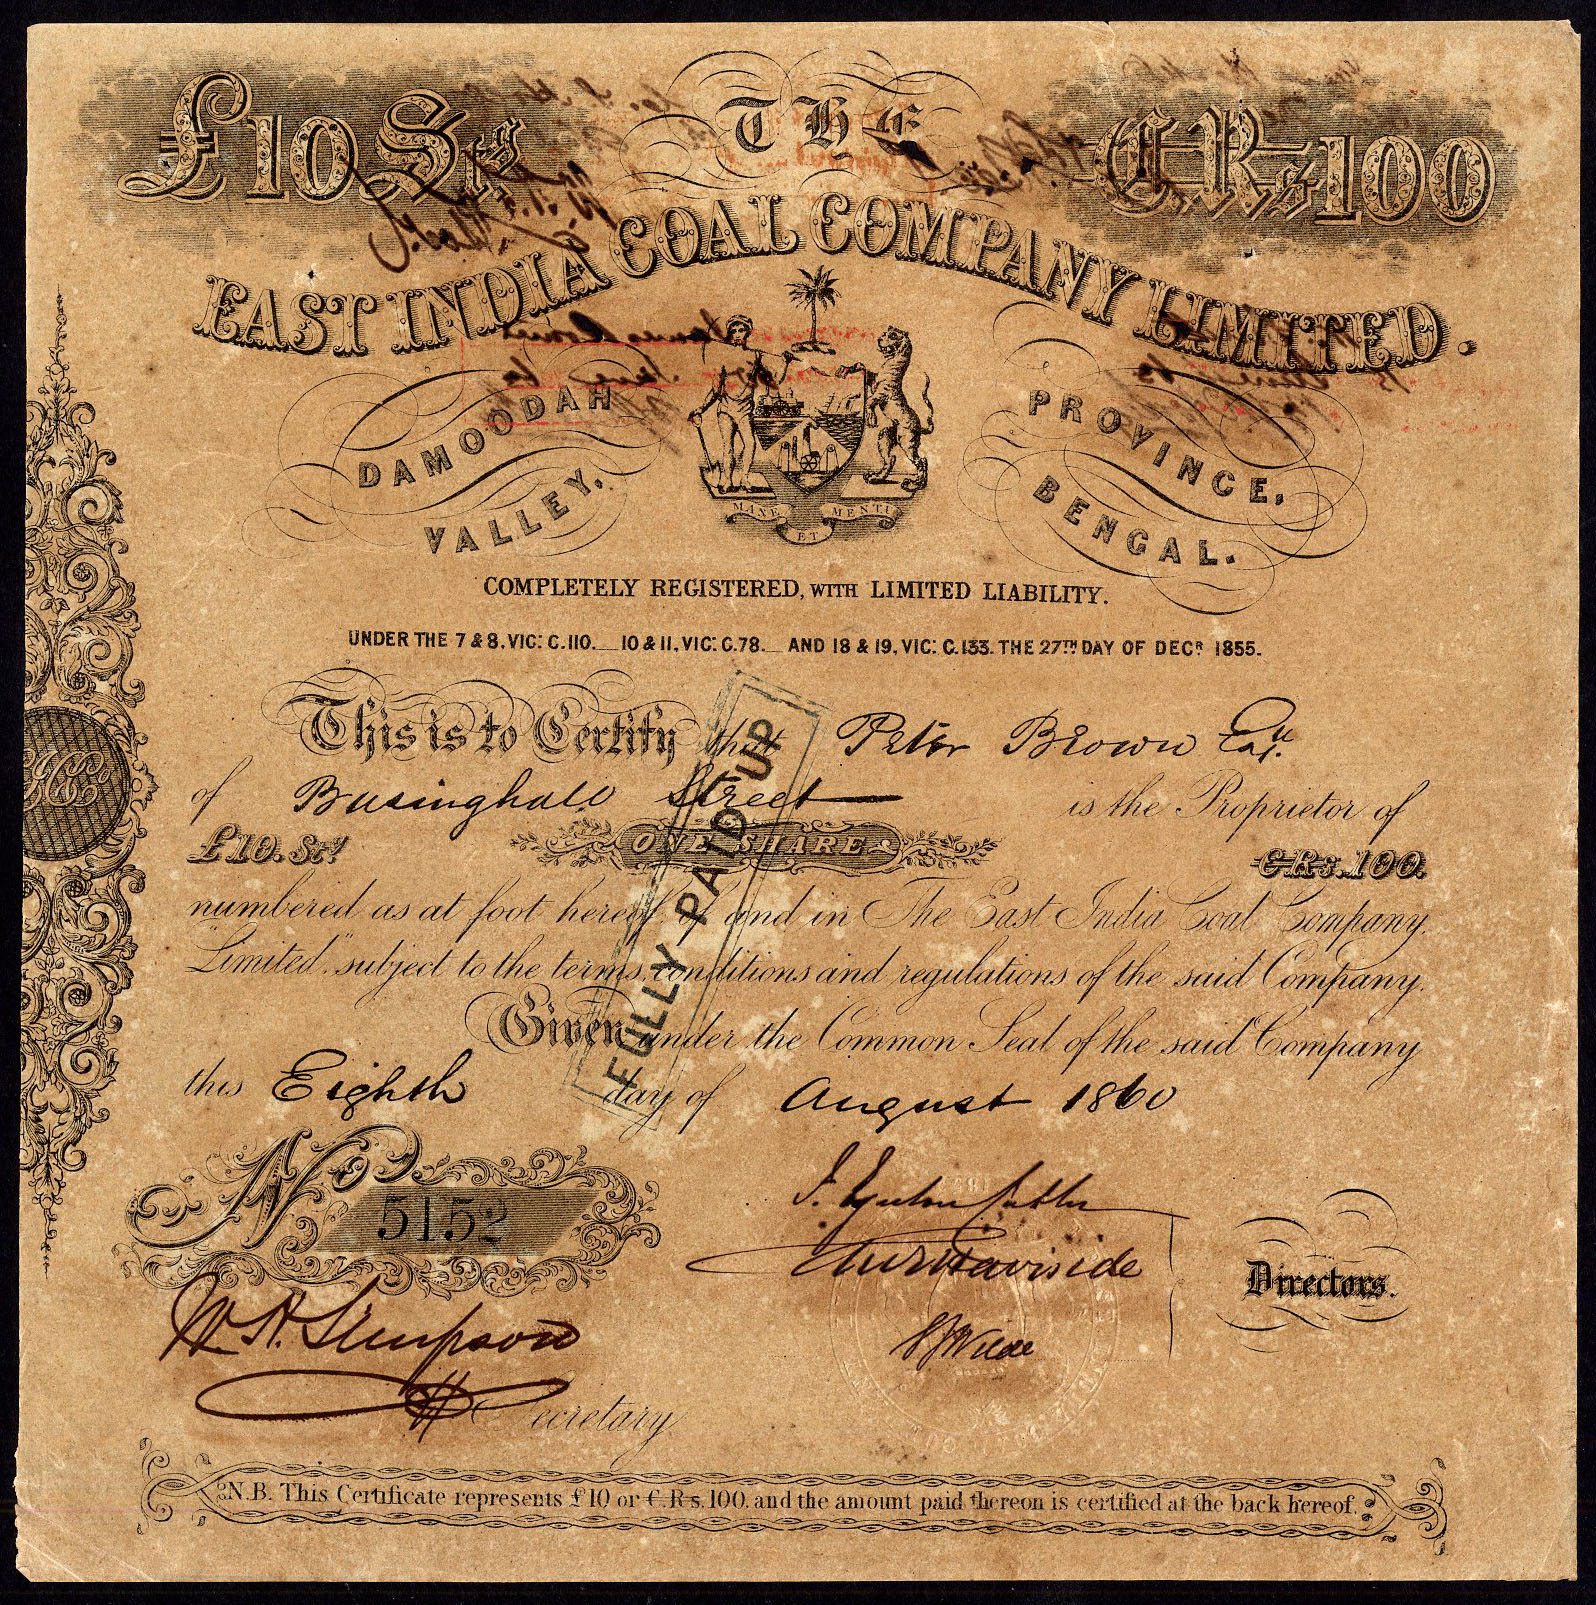 £10 Stg THE CRs100
EAST INDIA COAL COMPANY LIMITED.
DAMOODAH PROVINCE,
VALLEY, BENGAL.
MANE ET MENTU
COMPLETELY REGISTERED, WITH LIMITED LIABILITY.
UNDER THE 7 & 8, VIC: C.110. __ 10 & 11, VIC: C.78. __ AND 18 & 19, VIC: C.133. THE 27TH DAY OF DECR 1855.
This is to Certify that Peter Brown Esq.
of Basinghall Street is the Proprietor of
£10. Stg ONE SHARE CRs. 100.
numbered as at foot hereof, of and in The East India Coal Company,
"Limited", subject to the terms, conditions and regulations of the said Company.
Given under the Common Seal of the said Company
this Eighth day of August 1860
FULLY PAID UP
No 5152
W. H. Simpson
Secretary
Directors.
N.B. This Certificate represents £10 or C.Rs. 100. and the amount paid thereon is certified at the back hereof.